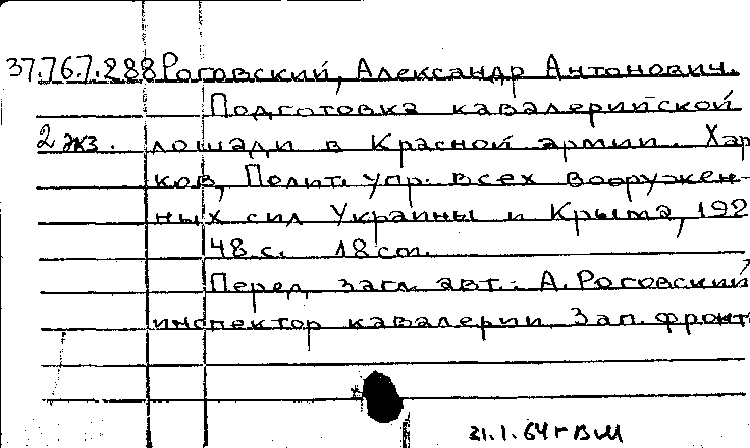 37.76.7.288 Роговский, Александр Антонович.
Подготовка кавалерийской
2 экз. лошади в Красной армии. Хар
ков, Полит. упр. всех вооружен-
ных сил Украины и Крыма, 192
48 с. 18 см.
Перед загл. авт.: А. Роговский,
инспектор кавалерии Зап. фронт
31.1.64 г ВМ